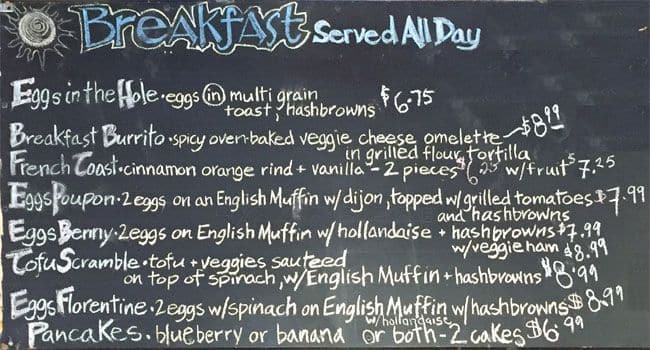 Breakfast Served All Day
Eggs in the Hole • eggs (in) multi grain $6.75
toast, hashbrowns
Breakfast Burrito • spicy oven-baked veggie cheese omelette – $8.99
in grilled flour tortilla
French Toast • cinnamon orange rind + vanilla – 2 pieces $6.25 w/fruit $7.25
Eggs Poupon • 2 eggs on an English Muffin w/ dijon, topped w/ grilled tomatoes $7.99
and hashbrowns
Eggs Benny • 2 eggs on English Muffin w/ hollandaise + hashbrowns $7.99
w/ veggie ham $8.99
Tofu Scramble • tofu + veggies sauteed
on top of spinach, w/ English Muffin + hashbrowns $8.99
Eggs Florentine • 2 eggs w/ spinach on English Muffin w/ hashbrowns $8.99
w/ hollandaise
Pancakes • blueberry or banana or both – 2 cakes $6.99